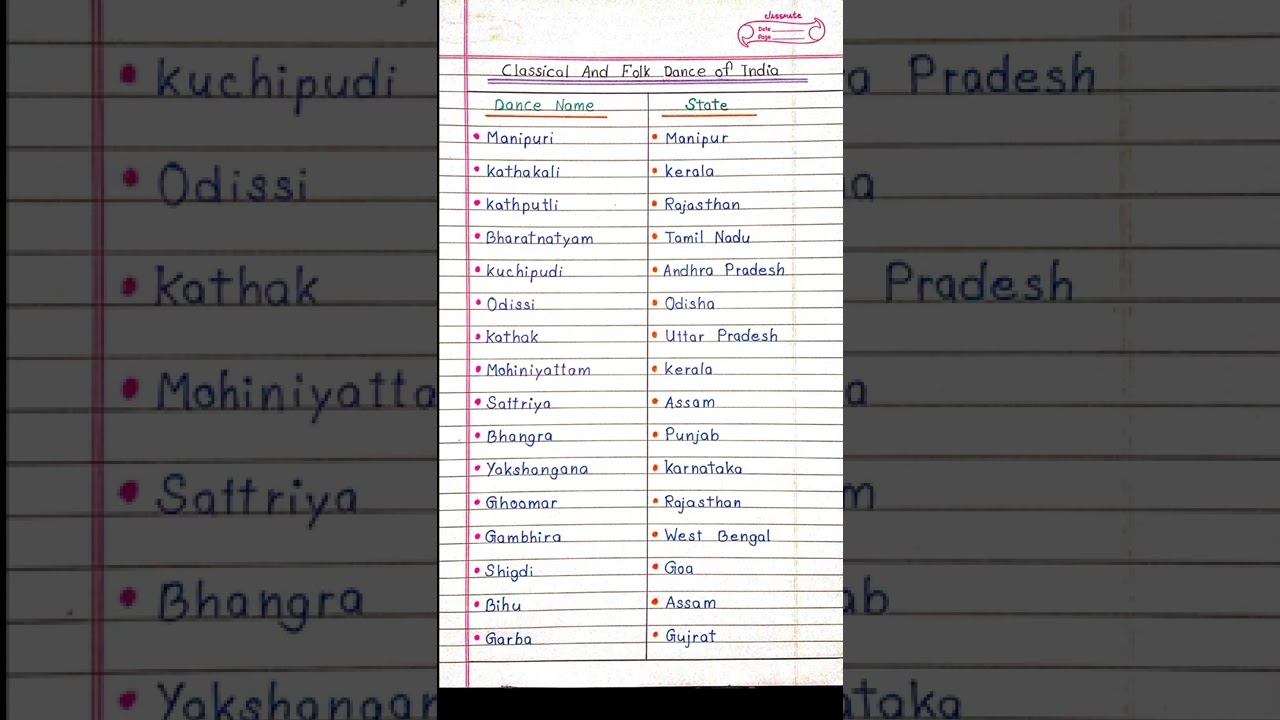 classmate
Date
Page
Classical And Folk Dance of India
Dance Name State
• Manipuri • Manipur
• Kathakali • Kerala
• Kathputli • Rajasthan
• Bharatnatyam • Tamil Nadu
• Kuchipudi • Andhra Pradesh
• Odissi • Odisha
• Kathak • Uttar Pradesh
• Mohiniyattam • Kerala
• Sattriya • Assam
• Bhangra • Punjab
• Yakshangana • Karnataka
• Ghoomar • Rajasthan
• Gambhira • West Bengal
• Shigdi • Goa
• Bihu • Assam
• Garba • Gujrat